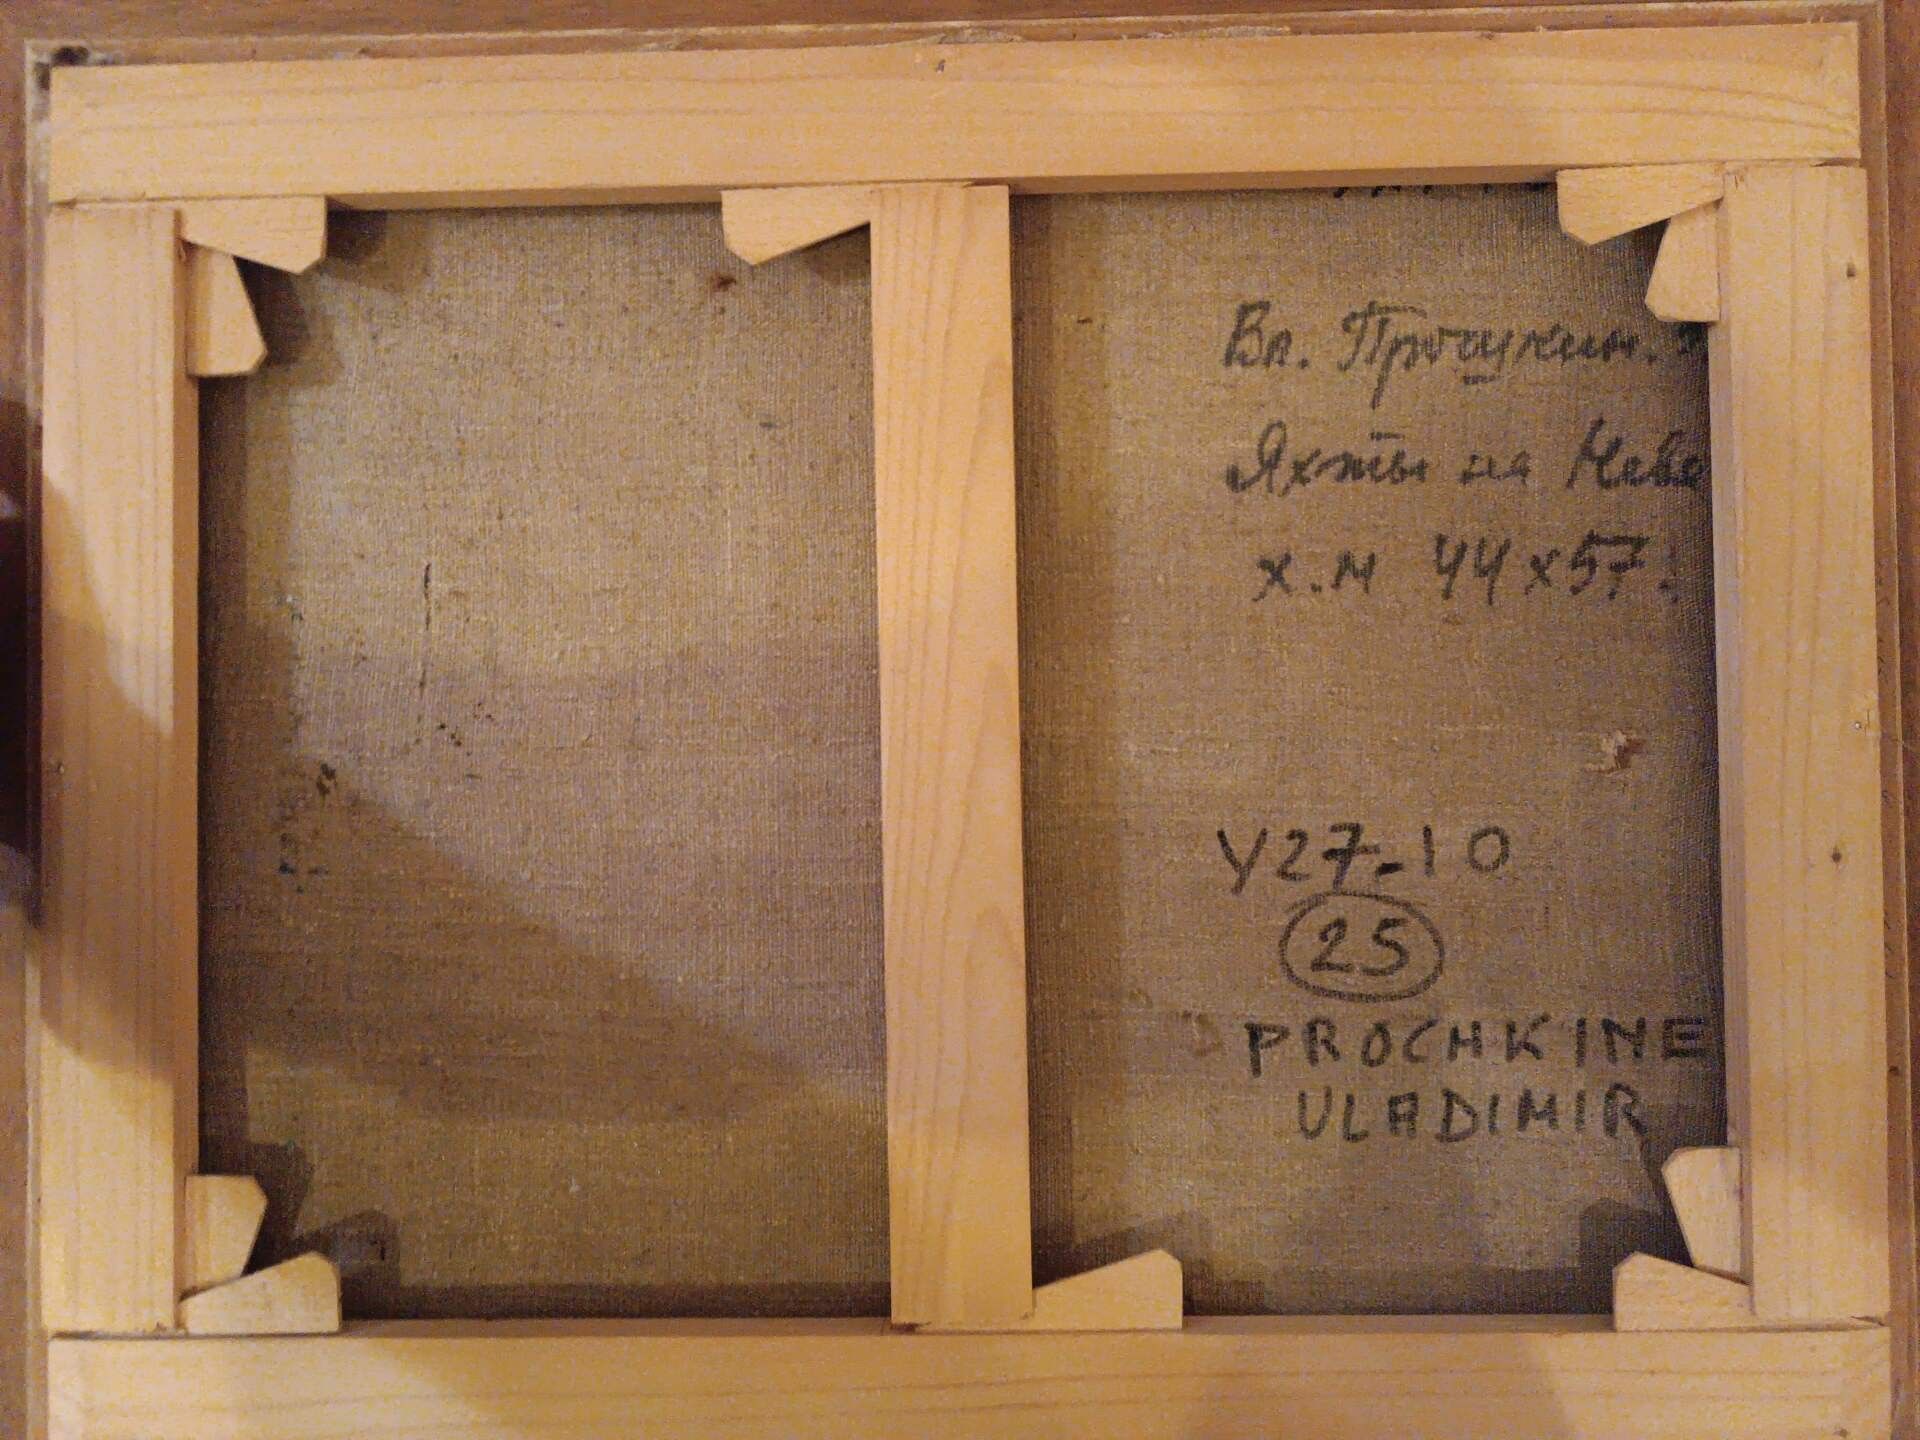 Вл. Прошкин.
Яхты на Неве
х.м 44х57.
У27-10
25
PROCHKINE
VLADIMIR